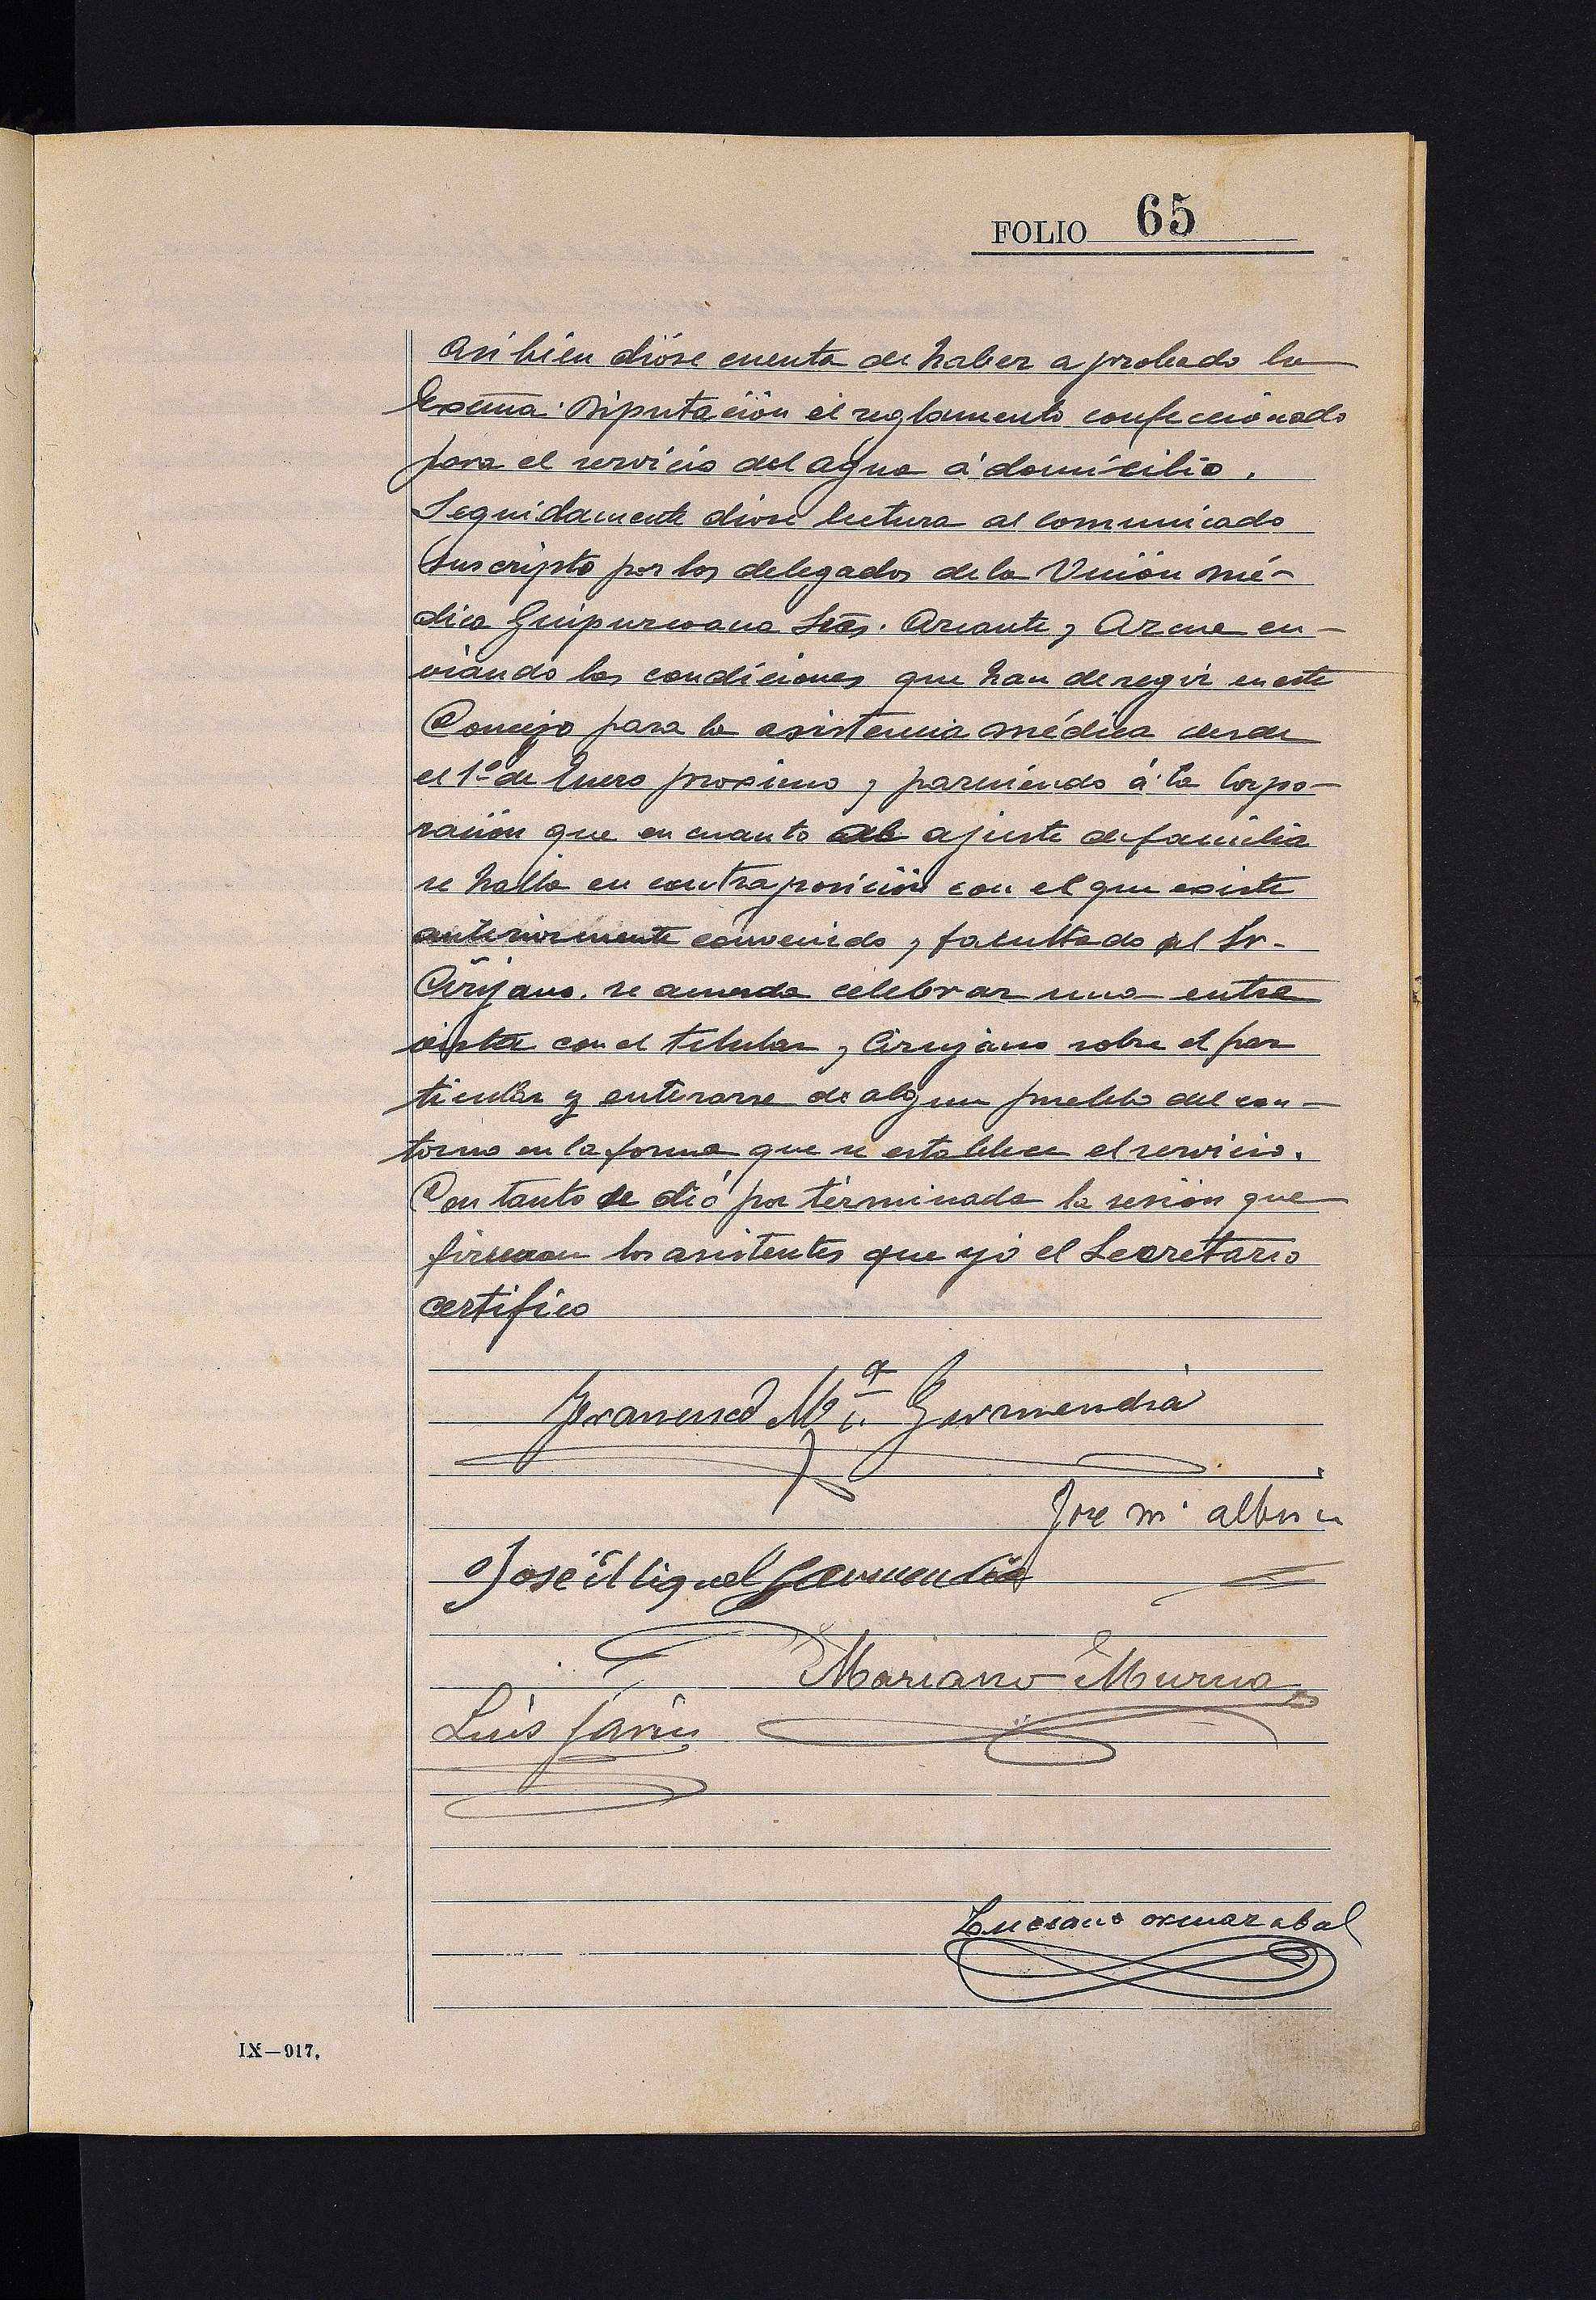 FOLIO 65
Asi bien dióse cuenta de haber aprobado la
Excma. Diputación el reglamento confeccionado
para el servicio del agua á domicilio.
Seguidamente dióse lectura al comunicado
suscripto por los delegados de la Unión mé-
dica Guipuzcoana Sres. y en-
viando las condiciones que han de regir en este
Concejo para la asistencia médica desde
el 1º de Enero proximo y pareciendo á la Corpo-
ración que en cuanto al ajuste de familia
se halla en contraposición con el que existe
anteriormente convenido y facultado al Sr.
Cirujano. se acuerda celebrar una entre
vista con el titular y Cirujano sobre el par
ticular y enterarse de algun pueblo del con-
torno en la forma que se establece el servicio.
Con tanto se dió por terminada la sesión que
firman los asistentes que yo el Secretario
certifico
Francisco Mª Garmendia
Jose m
José Miguel Garmendia
Mariano Murua
Luis
Luciano ormazabal
IX—917.